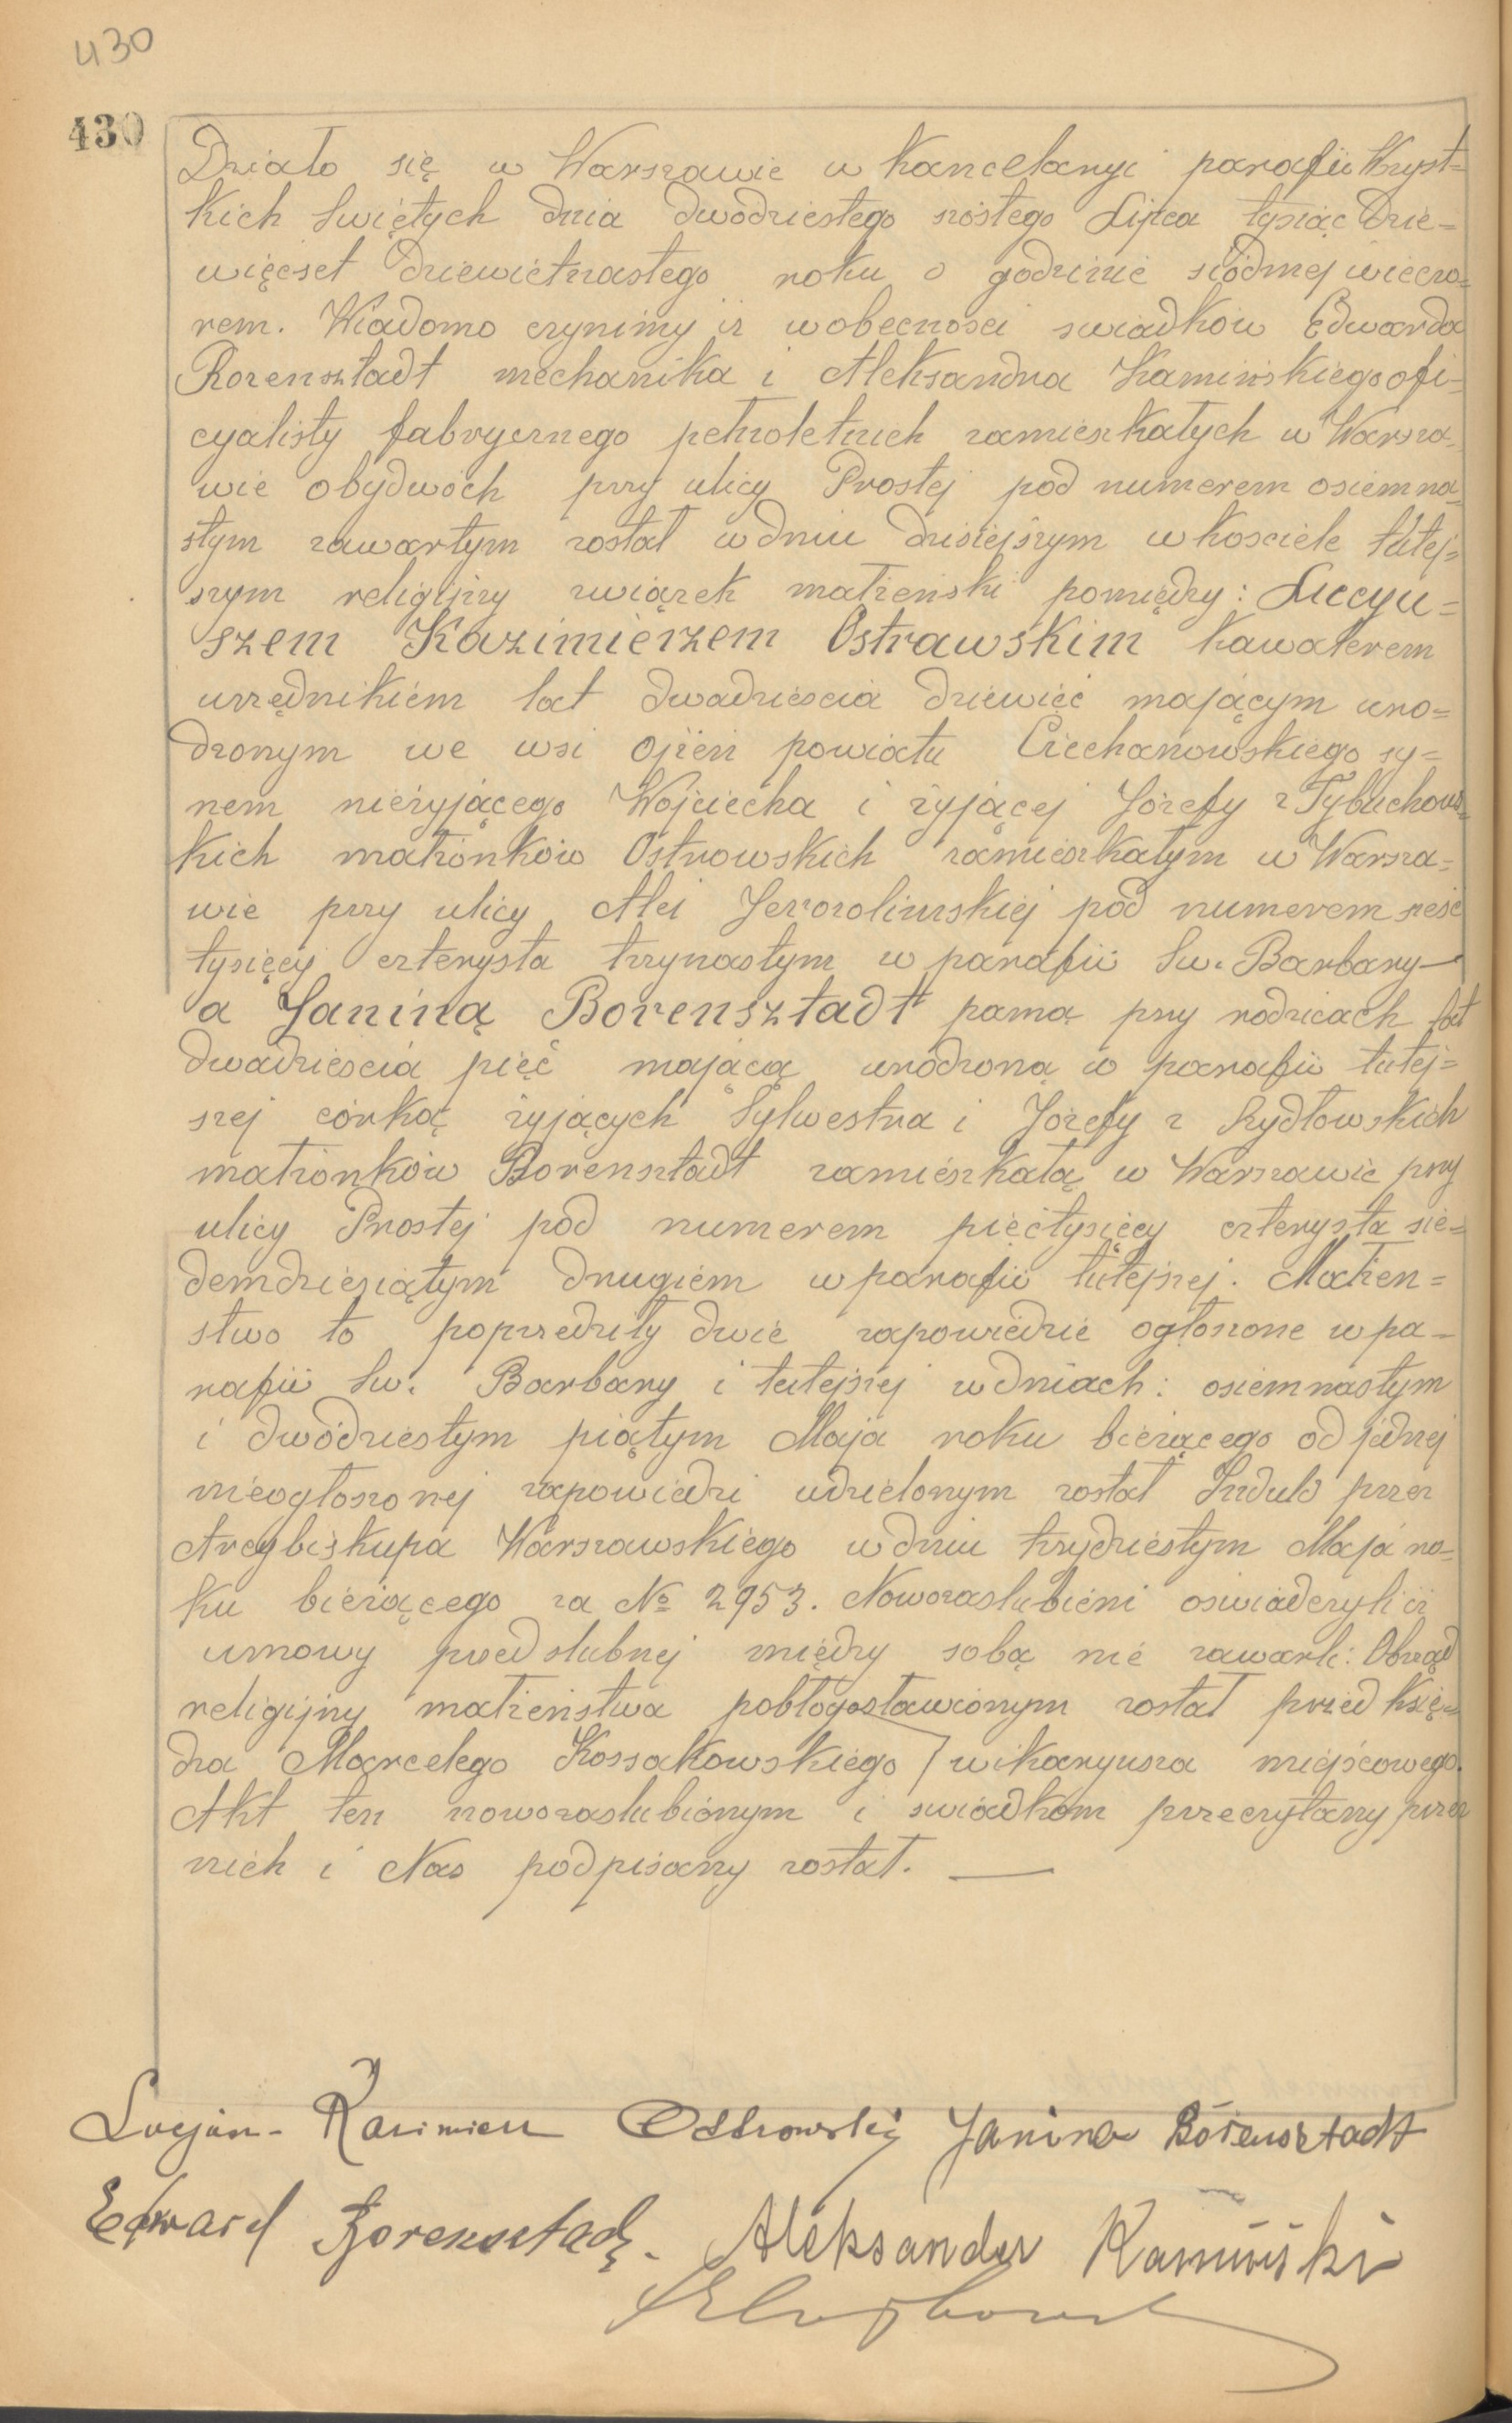 430
430
Działo się w Warszawie w Kancelaryi parafii Wszyst=
kich Świętych dnia dwudziestego szóstego Lipca tysiąc Dzie=
więcset dziewietnastego roku o godzinie siódmej wieczo=
rem. Wiadomo czynimy iż wobecnosci swiadków Edwarda
Rorensztadt mechanika i Aleksandra Kamińskiego ofi=
cyalisty fabrycznego pełnoletnich zamieszkałych w Warsza=
wie obydwóch przy ulicy Prostej pod numerem osiemna=
stym zawartym został w dniu dzisiejszym w kosciele tutej=
szym religijny związek małżeński pomiędzy: Lucyu=
szem Kazimierzem Ostrawskim kawalerem
urzędnikiem lat dwadzieścia dziewięć mającym uro=
dzonym we wsi Ojżeń powiatu Ciechanowskiego sy=
nem nieżyjącego Wojciecha i żyjącej Józefy z Tybuchows=
kich małżonków Ostrowskich zamieszkałym w Warsza=
wie przy ulicy Alei Jerozolimskiej pod numerem sześć
tysięcy czterysta trzynastym w parafii Sw. Barbary—
a Janiną Borensztadt panną przy rodzicach lat
dwadzieścia pięć mającą urodzoną w parafii tutej=
szej córką żyjących Sylwestra i Józefy z Szydłowskich
małżonków Borensztadt zamieszkałą w Warszawie przy
ulicy Prostej pod numerem pięćtysięcy czterysta sie=
demdziesiątym drugiem w parafii tutejszej. Małżen=
stwo to poprzedziły dwie zapowiedzie ogłoszone w pa=
rafii Sw. Barbary i tutejszej w dniach: osiemnastym
i dwódziestym piątym Maja roku bieżącego od jednej
nieogłoszonej zapowiedzi udzielonym został Indult przez
Arcybiskupa Warszawskiego w dniu trzydziestym Maja ro=
ku bieżącego za № 2953. Nowozaslubieni oswiadczyli iż
umowy przedslubnej między sobą nie zawarli: Obrząd
religijny małżeństwa pobłogosławionym został przed Księ=
dza Marcelego Kossakowskiego wikaryusza miejscowego.
Akt ten nowozaslubionym i swiadkom przeczytany przez
nich i Nas podpisany został. —
Lucjan - Kazimierz Ostrowski Janina Borensztadt
Edward Borensztadt. Aleksander Kamiński